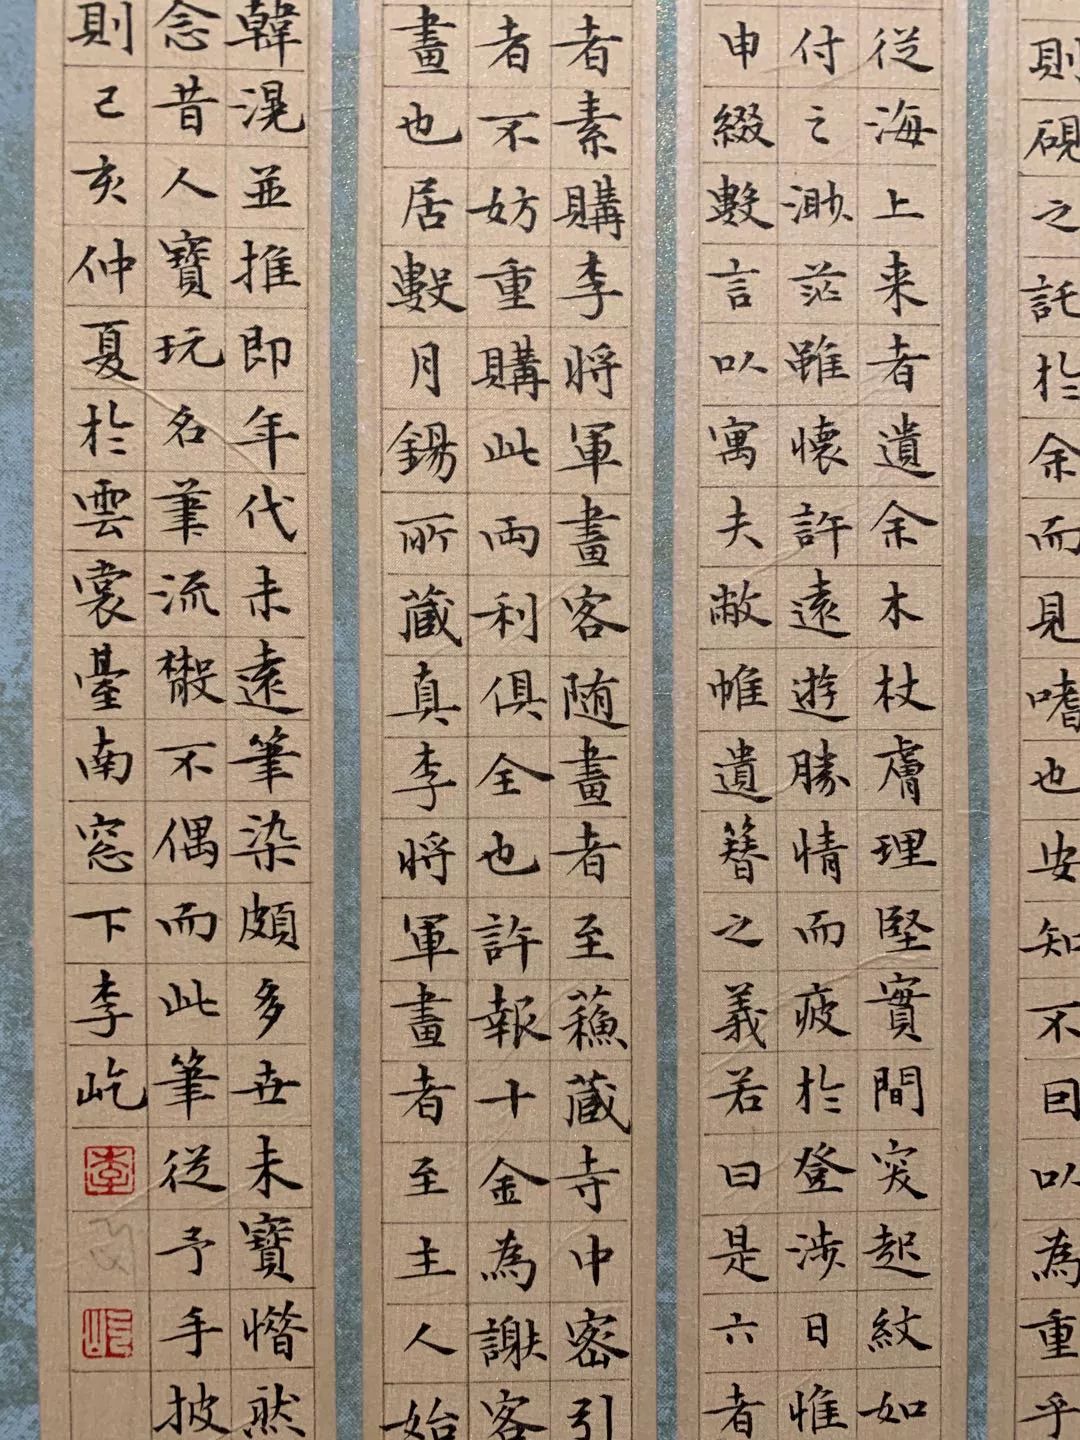 則硯之託於余而見嗜也安知不曰以為重乎
從海上来者遺余木杖膚理堅實間突起紋如
付之渺茫雖懷許遠遊勝情而疲於登涉日惟
申綴數言以寓夫敝帷遺簪之義若曰是六者
者素購李將軍畫客随畫者至蘓蔵寺中密引
者不妨重購此両利俱全也許報十金為謝客
畫也居數月錫所蔵真李將軍畫者至主人始
韓滉並推即年代未遠筆染頗多世未寶惜然
念昔人寶玩名筆流散不偶而此筆從予手披
則己亥仲夏於雲裳臺南窓下李屹
李